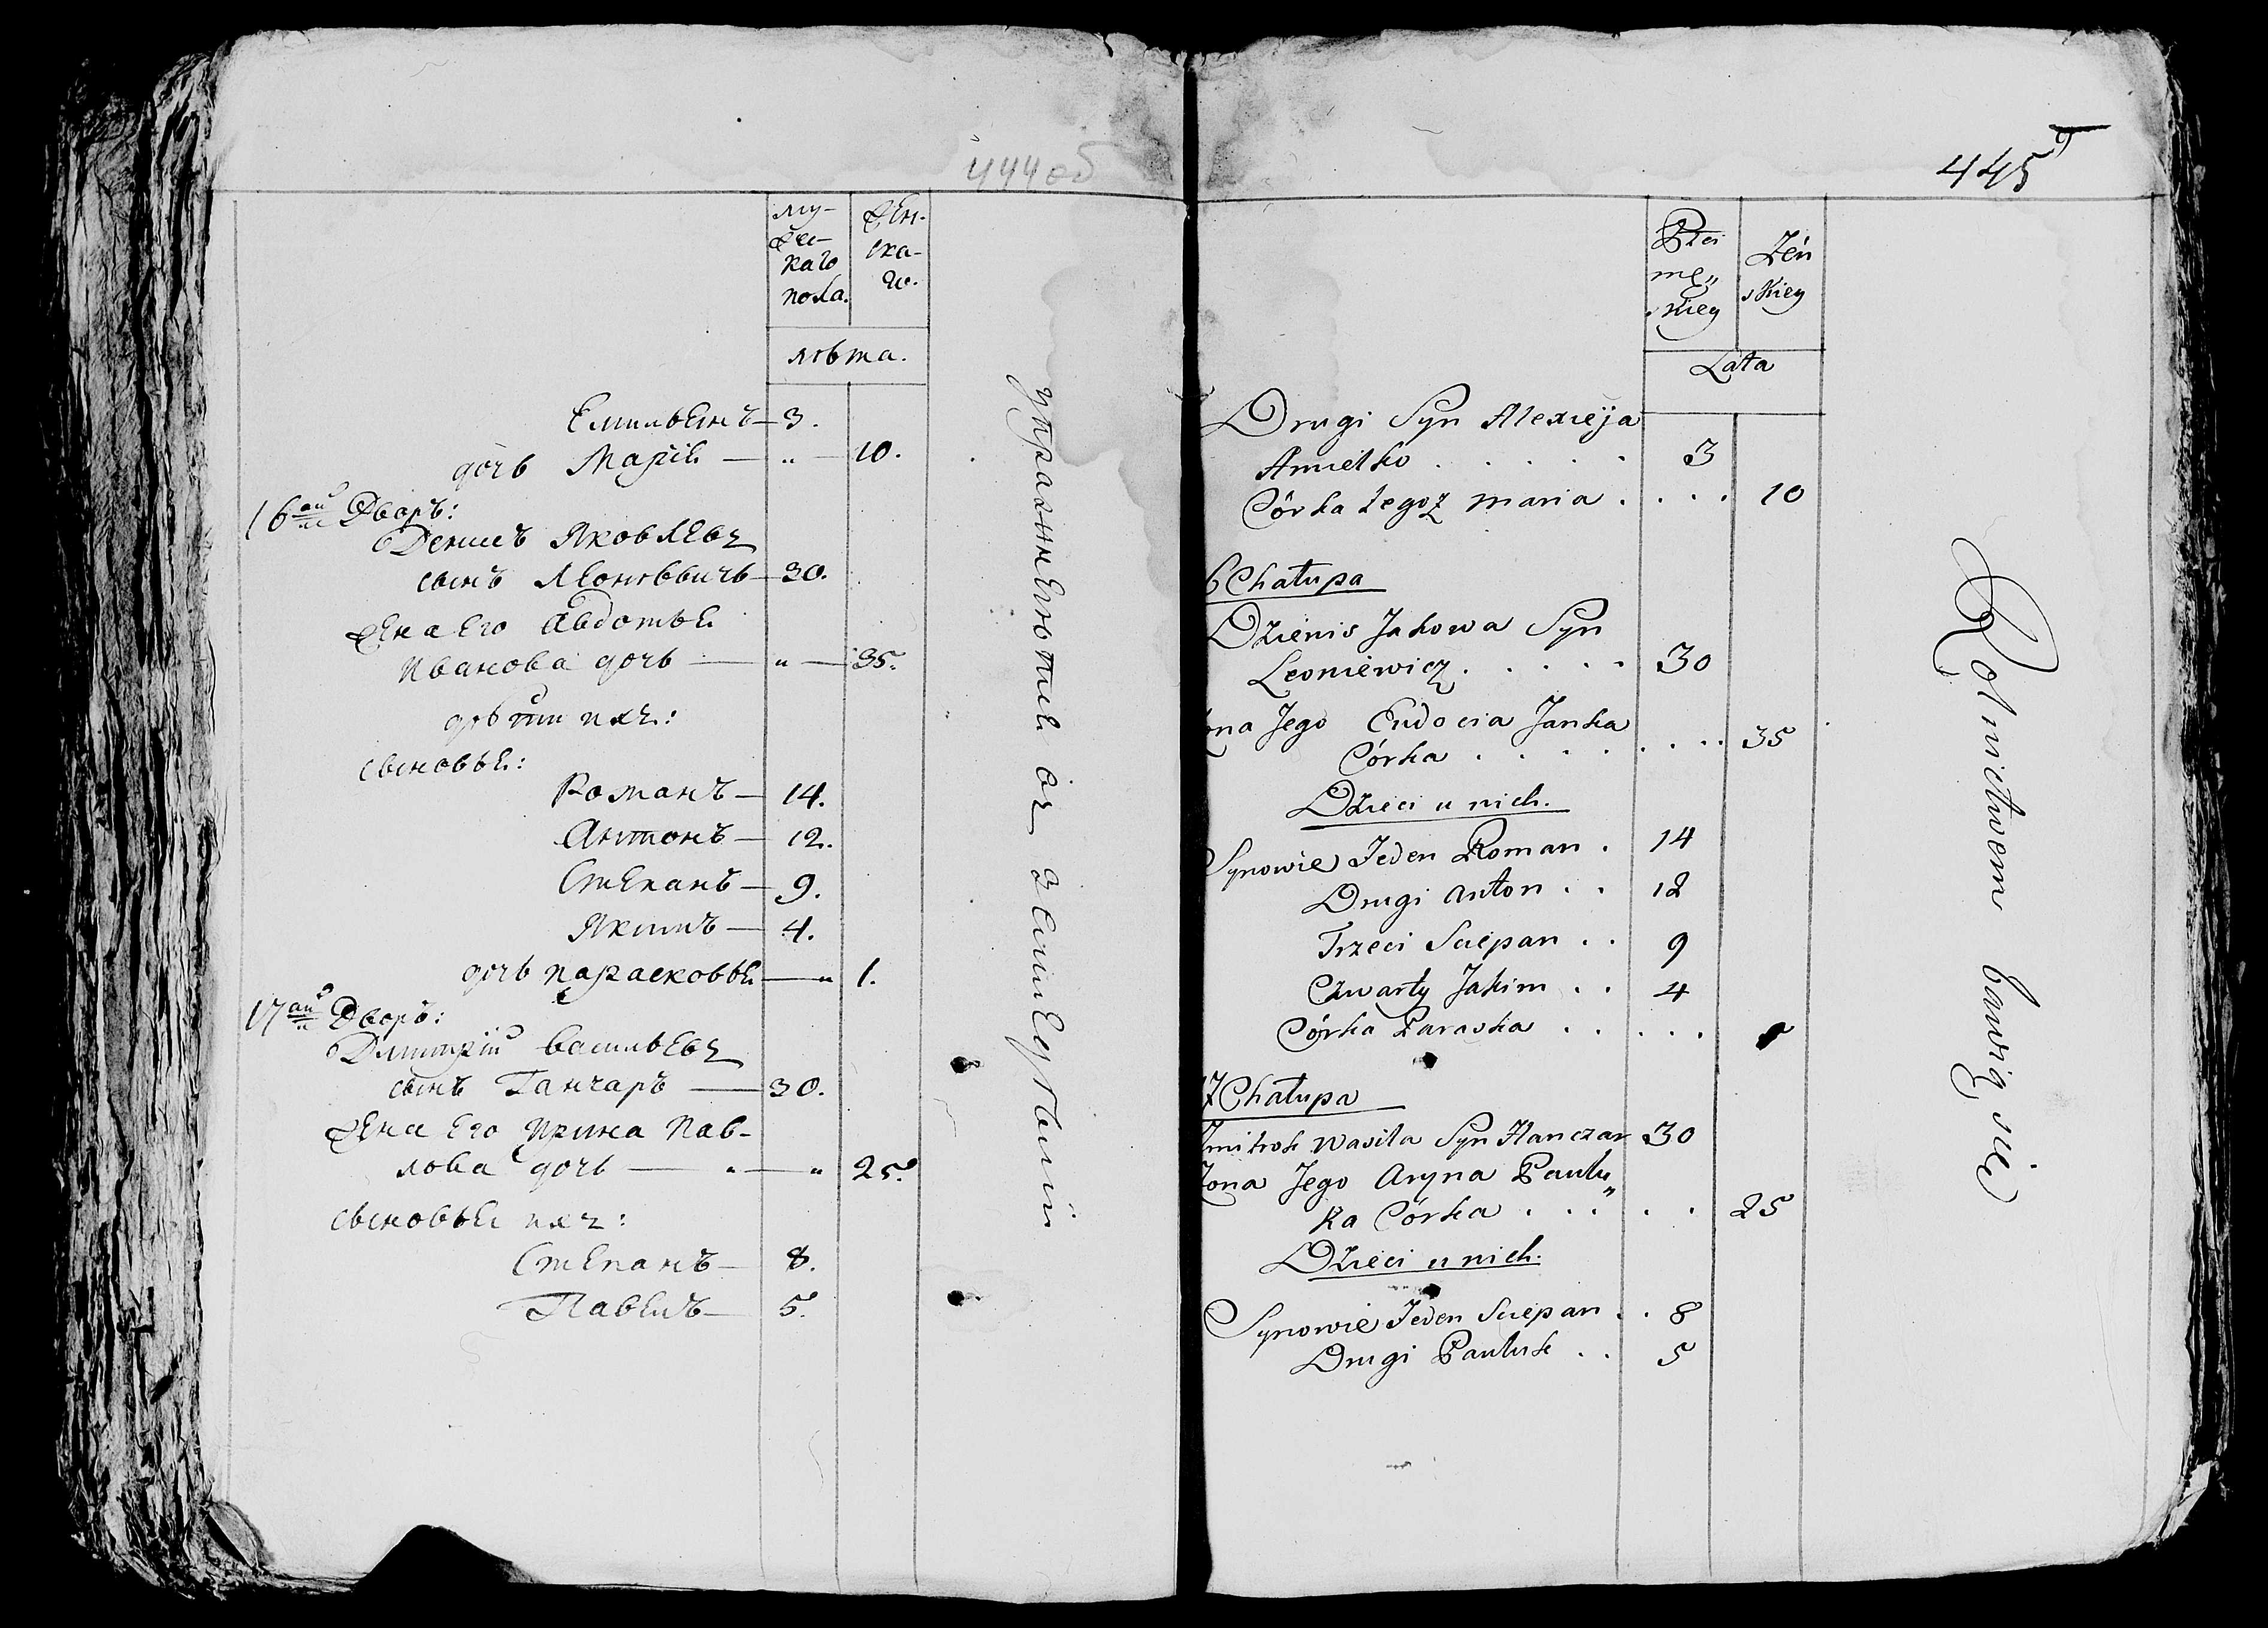 444 об
му-
жес-
каго
пола.
жен-
ска-
го.
лѣта.
Емильянъ — 3.
дочь Марія — " — 10.
16ый Дворъ:
Денисъ Яковлевъ
сынъ Леонѣвичь — 30.
жена его Авдотья
Иванова дочь — " — 35.
дѣти ихъ:
сыновья:
Романъ — 14.
Антонъ — 12.
Степанъ — 9.
Якимъ — 4.
дочь Парасковья — " 1.
17ый Дворъ:
Дмитрій Васильевъ
сынъ Ганчаръ — 30.
жена его Ирина Пав-
лова дочь — " — " 25.
сыновья ихъ:
Степанъ — 8.
Павелъ — 5.
упражняются въ земледѣліи
9
445
Płci
mę„
skiey
Żeń
skiey
Lata
Drugi Syn Alexieja
Amielko . . . . . 3
Córka tegoż Maria . . . . 10
6 Chałupa
Dzienis Jakowa Syn
Leoniewicz . . . . . 30
ona Jego Eudocia Janka
Córka . . . . . . . . 35
Dzieci u nich.
Synowie Jeden Roman . 14
Drugi Anton . . 12
Trzeci Sciepan . . 9
Czwarty Jakim . . 4
Córka Paraska . . . . .
17 Chałupa
Dmitrok Wasila Syn Hanczar 30
Żona Jego Aryna Paulu„
ka Córka . . . . . 25
Dzieci u nich.
Synowie Jeden Sciepan . . 8
Drugi Pauluk . . 5
Rolnictwem bawią się